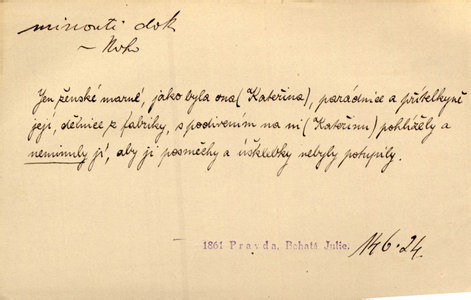 minouti dok
~ Koho
Jen ženské marné, jako byla ona (Kateřina), parádnice a přítelkyně
její, dělnice z fabriky, s podivením na ni (Kateřinu) pohlížely a
neminuly jí, aby ji posměchy a úšklebky nebyly potupily.
1861 Pravda, Bohatá Julie.
14 6. 24.